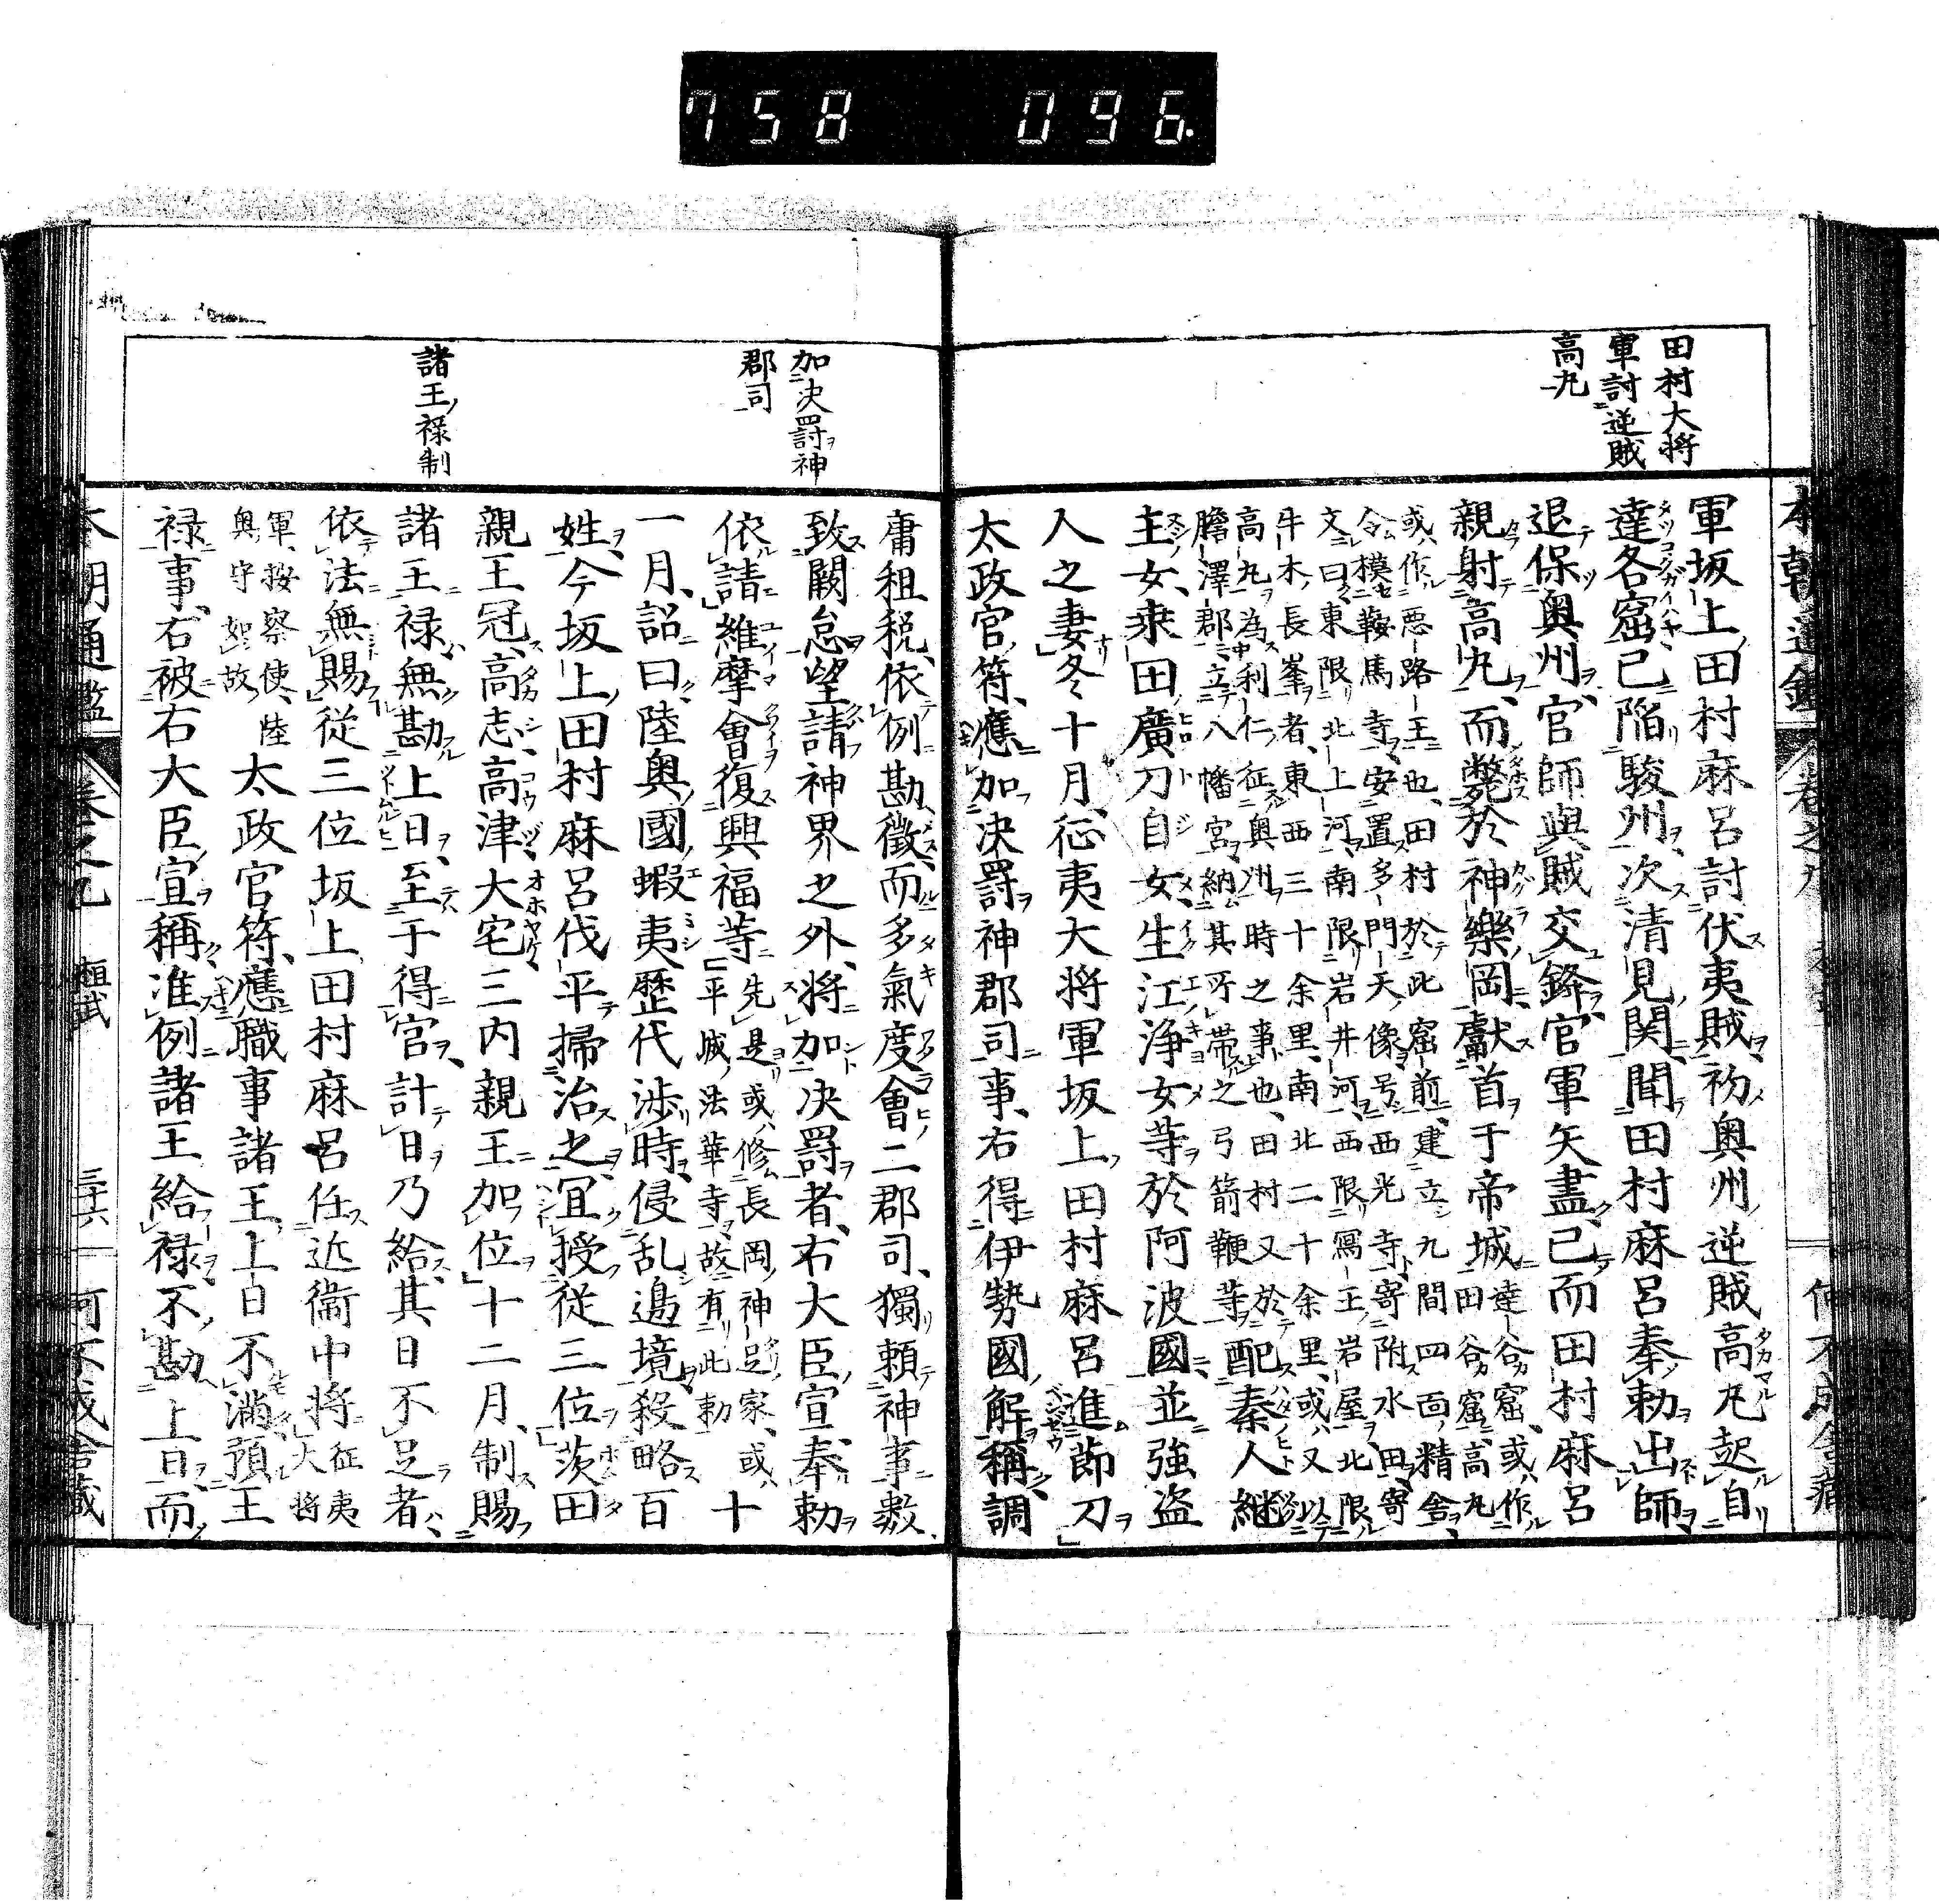 758 096.
田村大将
軍討逆賊
高丸
軍坂上田村麻呂討伏夷賊初奥州逆賊高丸起自
達各窟已陥駿州次清見関聞田村麻呂奉勅出師
退保奥州官師與賊交鋒官軍矢盡已而田村麻呂
親射高丸而斃於神樂岡獻首于帝城
達谷窟或作
田谷窟高丸
或作悪路王也田村於此窟前建立九間四面精舎
令模鞍馬寺安置多門天像号西光寺寄附水田寄
文曰東限北上河南限岩井河西限寫王岩屋北限
牛木長峯者東西三十余里南北二十余里或又以
高丸為利仁征奥州時之事也田村又於
膽澤郡立八幡宮納其所帯之弓箭鞭等
配秦人継
主女桒田廣刀自女生江浄女等於阿波國並強盗
人之妻冬十月征夷大将軍坂上田村麻呂進節刀
太政官符應加决罸神郡司事右得伊勢國解稱調
加决罸神
郡司
諸王禄制
庸租税依例勘徴而多氣度會二郡司獨頼神事数
致闕怠望請神界之外将加决罸者右大臣宣奉勅
依請維摩會復興福等
先是或修長岡神足家或
平城法華寺故有此勅
十
一月詔曰陸奥國蝦夷歴代渉時侵乱邉境殺略百
姓今坂上田村麻呂伐平掃治之冝授従三位茨田
親王冠高志高津大宅三内親王加位十二月制賜
諸王禄無勘上日至于得官計日乃給其日不足者
依法無賜従三位坂上田村麻呂任近衞中将
征夷
大将
軍按察使陸
奥守如故
太政官符應職事諸王上日不満預王
禄事右被右大臣宣稱准例諸王給禄不勘上日而
桓武
三十六